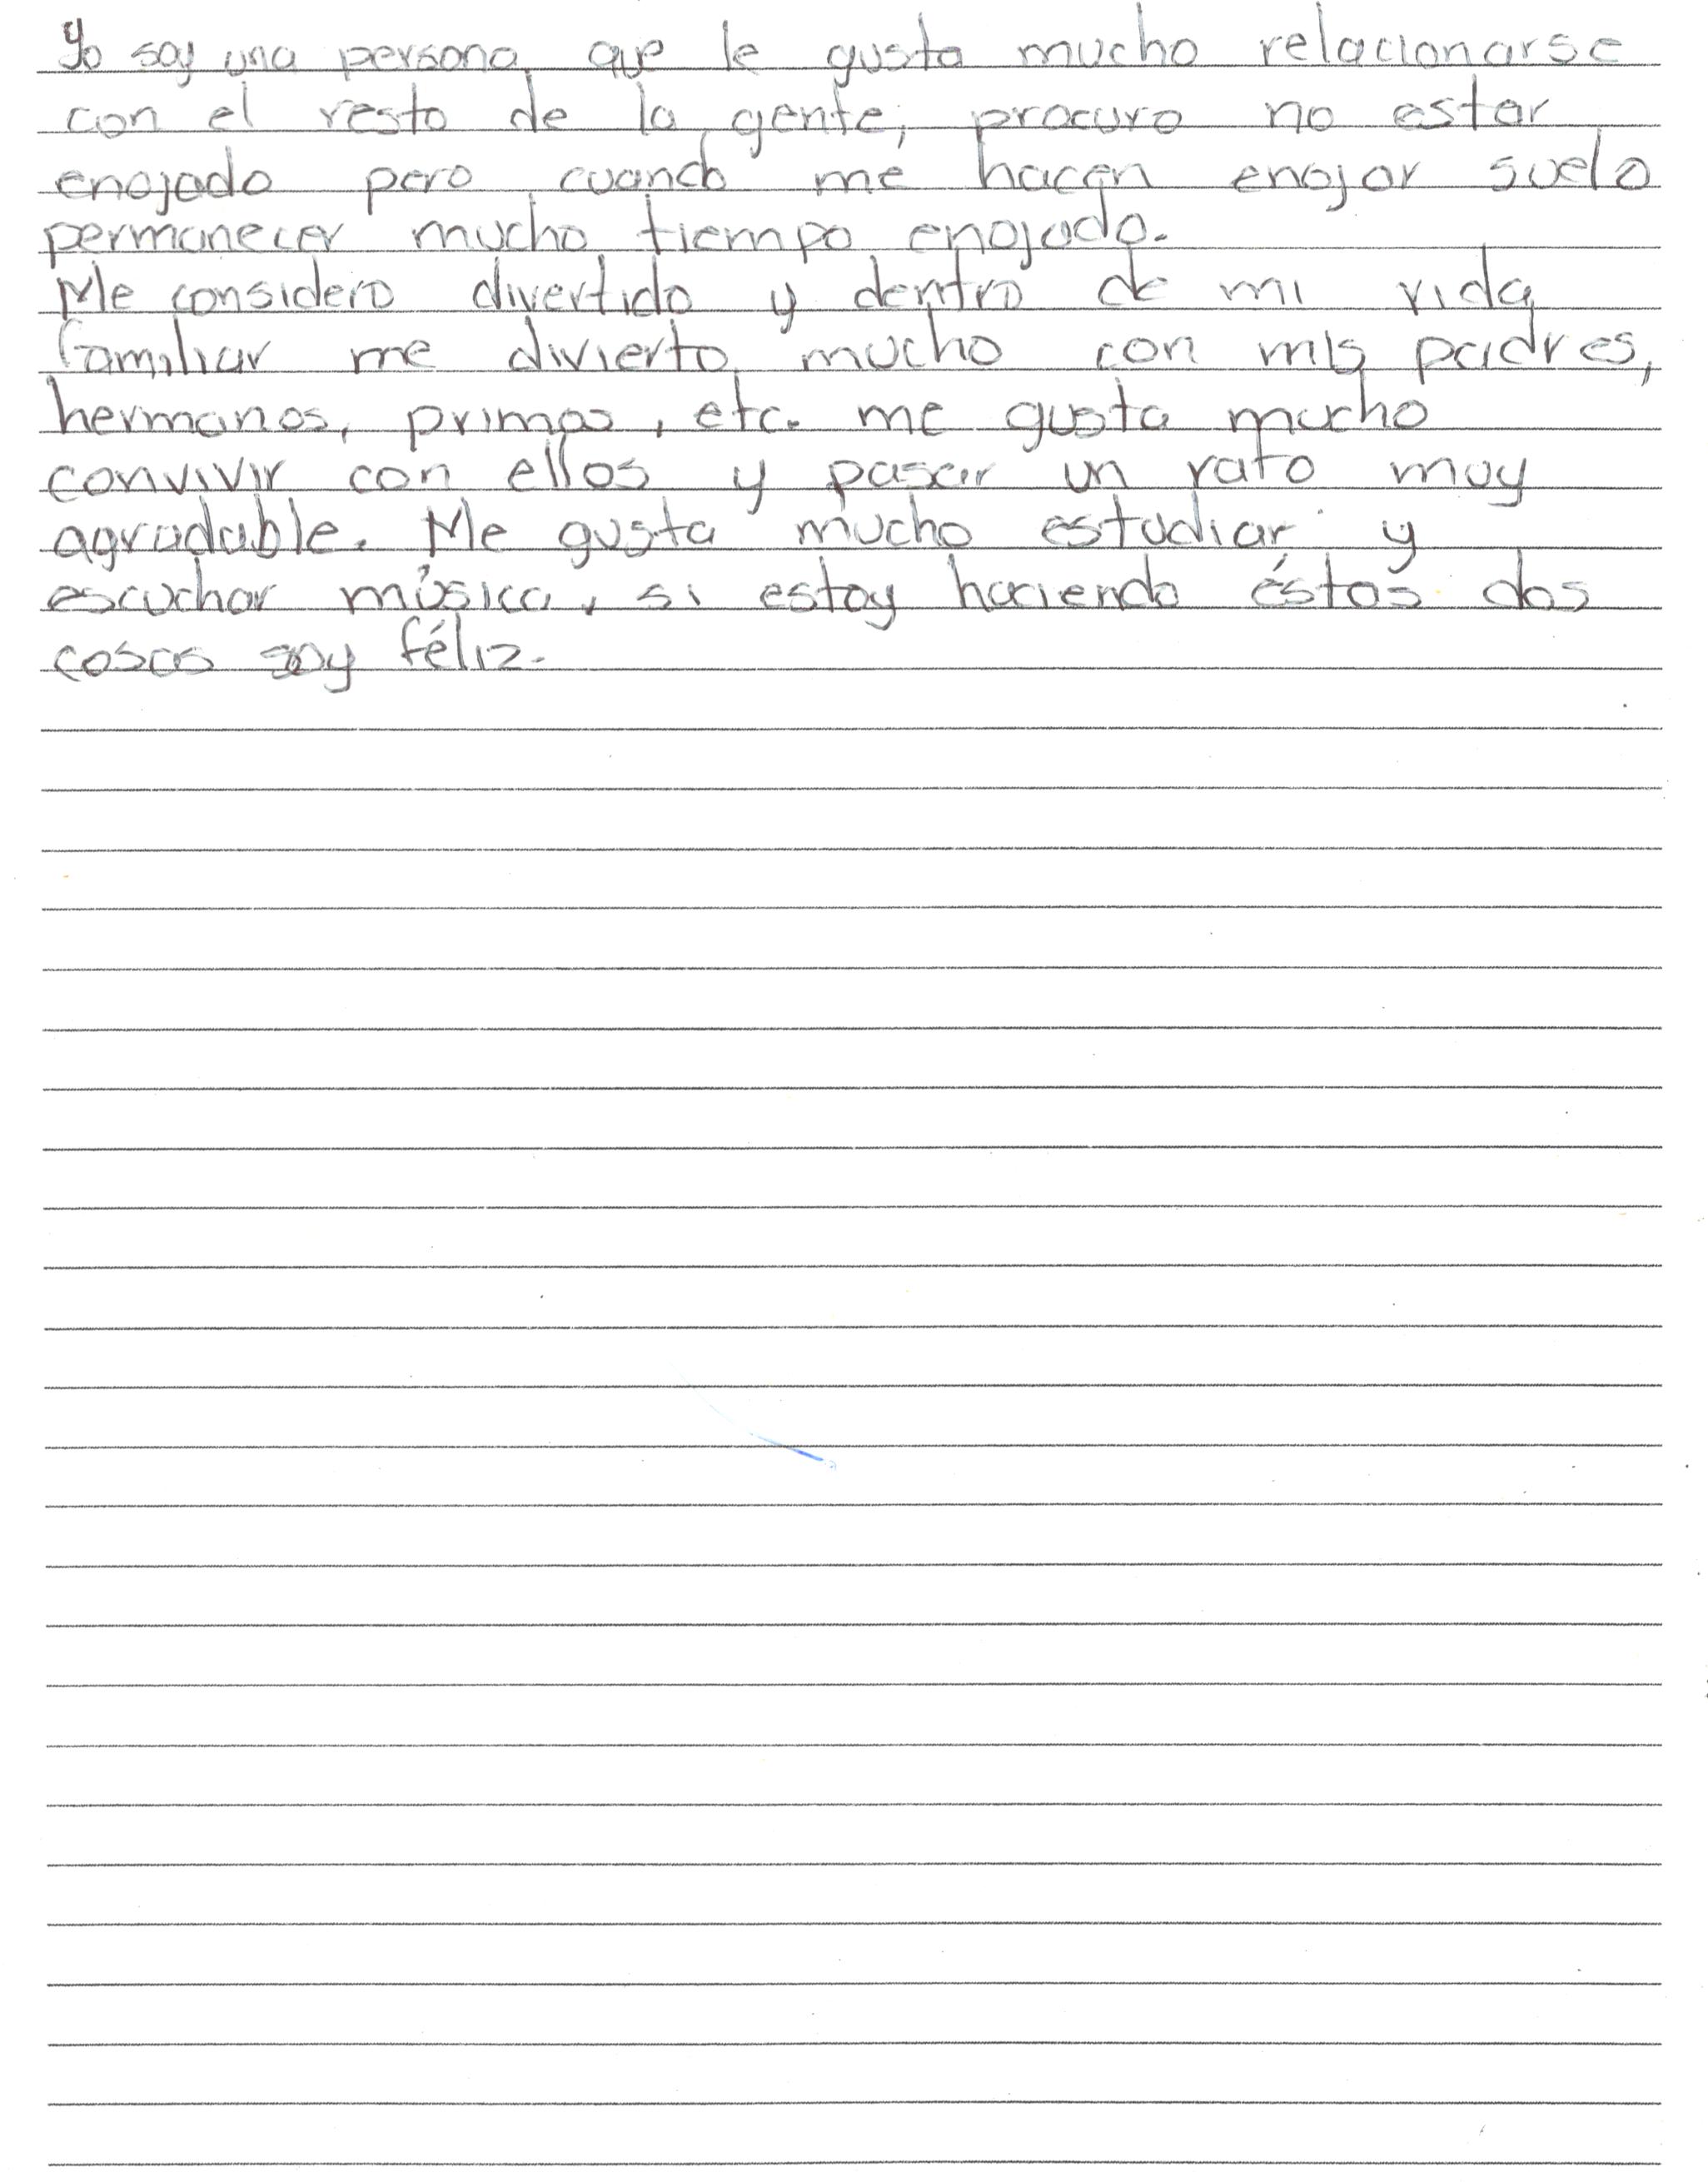 Yo soy una persona que le gusta mucho relacionarse
con el resto de la gente, procuro no estar
enojado pero cuando me hacen enojar suelo
permanecer mucho tiempo enojado.
Me considero divertido y dentro de mi vida
familiar me divierto mucho con mis padres,
hermanos, primos, etc. me gusta mucho
convivir con ellos y pasar un rato muy
agradable. Me gusta mucho estudiar y
escuchar música, si estoy haciendo éstas dos
cosas soy féliz.